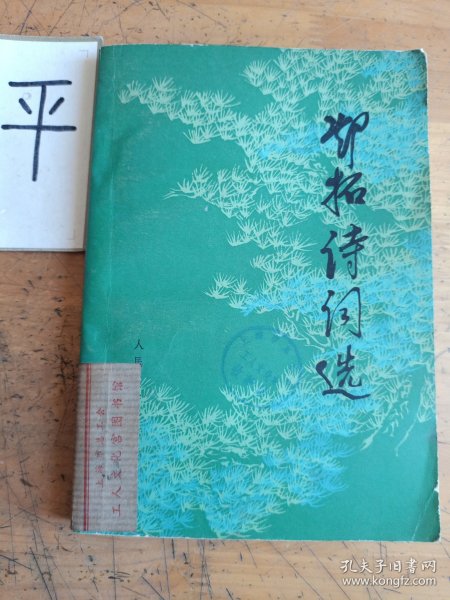 平
邓拓诗词选
人民
工人文化宫图书馆
孔夫子旧书网
www.kongfz.com